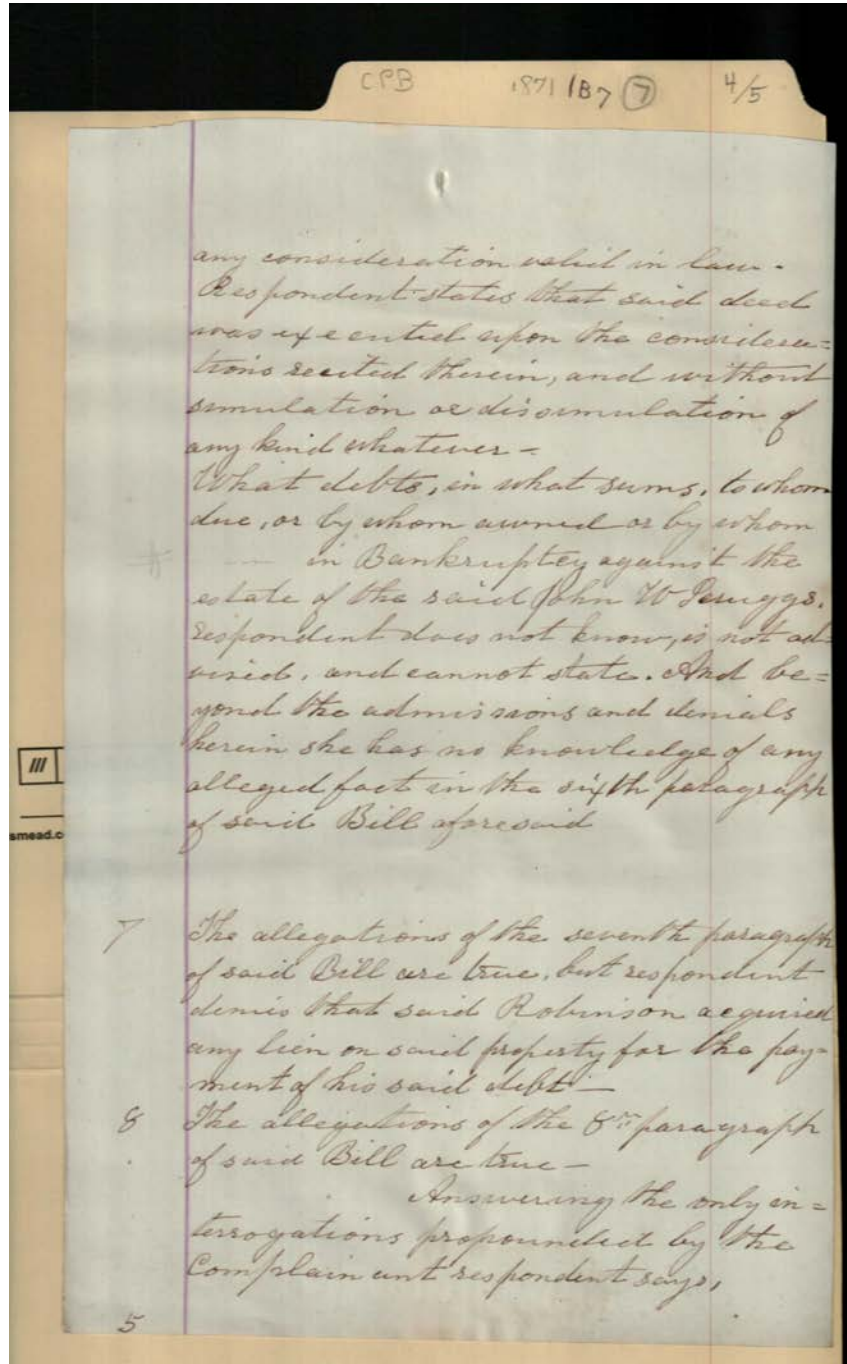 CPB 1871 1B7 7 4/5
any consideration valid in law.
Respondent states that said deed
was executed upon the considera=
tions recited therein, and without
simulation or dissimulation of
any kind whatever =
What debts, in what sums, to whom
due, or by whom owned or by whom
in Bankruptcy against the
estate of the said John W
respondent does not know, is not ad=
vised, and cannot state. And be=
yond the admissions and denials
herein she has no knowledge of any
alleged fact in the sixth paragraph
of said Bill aforesaid
smead.co
7 The allegations of the seventh paragraph
of said Bill are true, but respondent
denies that said Robinson acquired
any lien on said property for the pay=
ment of his said debt —
8 The allegations of the 8th paragraph
of said Bill are true —
Answering the only in=
terrogations propounded by the
Complainant respondent says,
5